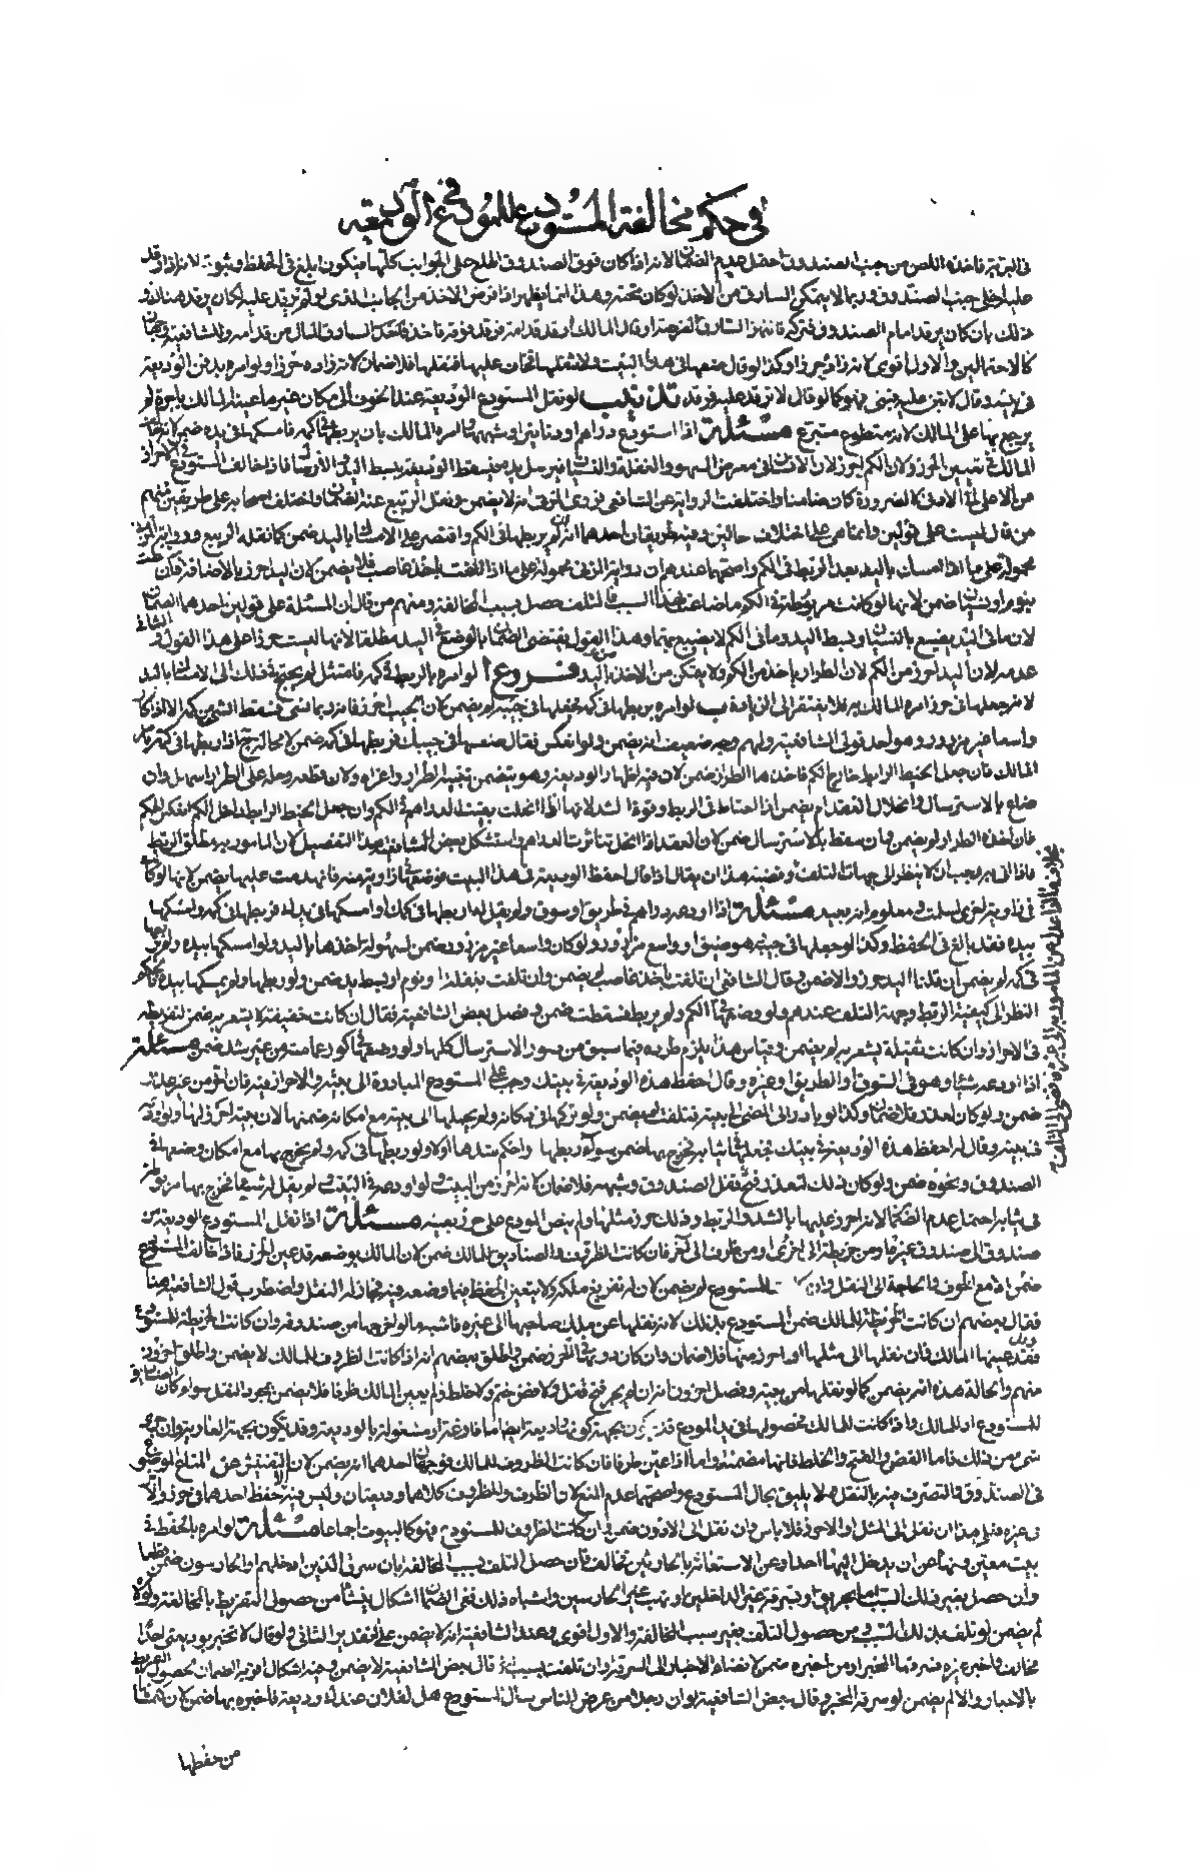 في حكم مخالفة المستودع للمودع في الوديعة
في البرية فأخذه اللص من جنب الصندوق احتمل عدم الضمان لأنه اذا كان فوق الصندوق اطلع على الجوانب كلها فيكون ابلغ في الحفظ
عليه اخلى جنب الصندوق وربما لا يتمكن السارق من الاخذ لو كان بجنبه وهذا انما يظهر اذا فرض الاخذ من الجانب الذي لو لم يرقد عليه لكان يرقد هناك
ذلك بان كان يرقد امام الصندوق فتركه فانتهز السارق الفرصة او قال المالك ارقد قدامه فرقد فوقه فاخذ السارق المال من قدامه وللشافعية وجهان
كالاحتمالين والاول اقوى لأنه زاده حرزا وكذا لو قال ضعها في هذا البيت ولا تنقلها فخاف عليها فنقلها فلا ضمان لأنه زاده حرزا ولو امره بدفن الوديعة
في بيته وقال لا تبن عليه فبنى فهو كما لو قال لا ترقد عليه فرقد تذنيب لو نقل المستودع الوديعة عند الخوف الى مكان غير ما عينه المالك باجرة لم
يرجع بها على المالك لأنه متطوع متبرع مسئلة اذا استودع دراهم او دنانير او شبههما وامره المالك بان يربطها في كمه فامسكها في يده ضمن
المالك في تعيين الحرز ولأن الكم احرز لأن الانسان في معرض السهو والغفلة والنسيان فيرسل يده فيسقط الوديعة
من الاعلى الى الادنى لا لضرورة كان ضامنا واختلفت الرواية عن الشافعي فروى المزني انه لا يضمن ونقل الربيع عنه الضمان واختلف اصحابه على طريقين منهم
من قال ليست على قولين وانما هي على اختلاف حالين وفيه طريقان احدهما انه ان لم يربطها في الكم واقتصر على الامساك باليد ضمن كما نقله الربيع ورواية المزني
محمولة على ما اذا امسك باليد بعد الربط في الكم واصحهما عندهم ان رواية المزني محمولة على ما اذا تلفت باخذ غاصب فلا يضمن لأن اليد احرز بالاضافة فان
بنوم او نسيان ضمن لأنها لو كانت مربوطة في الكم ما ضاعت بهذا السبب فالتلف حصل بسبب المخالفة ومنهم من قال ان المسئلة على قولين احدهما الضمان
لأن ما في اليد يضيع بالنسيان وبسط اليد وما في الكم لا يضيع بهما وهذا القول يقتضي الضمان بالوضع في اليد مطلقا لأنها ليست حرزا على هذا القول والثاني
عدمه لأن اليد احرز من الكم لأن الطرار ياخذ من الكم ولا يتمكن من الاخذ من اليد فروع ا لو امره بالربط في كمه فامتثل لم يحتج مع ذلك الى الامساك باليد
لأنه جعلها في حرز امره المالك به فلا يفتقر الى الزيادة ب لو امره بربطها في كمه فجعلها في جيبه لم يضمن لأن الجيب احرز فانه ربما نسي فسقط الشيء من كمه الا اذا كان
واسعا غير مزرور وهو احد قولي الشافعية ولهم وجه ضعيف انه يضمن ولو انعكس فقال ضعها في جيبك فربطها في كمه ضمن لا محالة ج اذا ربطها في كمه بامر
المالك فان جعل الخيط الرابط خارج الكم فاخذها الطرار ضمن لأن فيه اظهار الوديعة وهو يتضمن تنبيه الطرار واغراءه ولأن قطعه وحله على الطرار اسهل وان
ضاع بالاسترسال وانحلال العقد لم يضمن اذا احتاط في الربط وقوة الشد لأنها اذا انحلت بقيت الدراهم في الكم وان جعل الخيط الرابط داخل الكم انعكس الحكم
فان اخذه الطرار لم يضمن وان سقط بالاسترسال ضمن لأن العقد اذا انحل تناثرت الدراهم واستشكل بعض الشافعية هذا التفصيل لأن المامور به مطلق الربط
فاذا اتى به وجب ان لا ينظر الى جهات التلف وقضية هذا ان يقال اذا قال احفظ الوديعة في هذا البيت فوضعها في زاوية منه فانهدمت عليها يضمن لأنها لو كانت
في زاوية اخرى لسلمت ومعلوم انه بعيد مسئلة اذا اودعه دراهم في طريق او سوق ولم يقل له اربطها في كمك او امسكها في يدك فربطها في كمه وامسكها
بيده فقد بالغ في الحفظ وكذا لو جعلها في جيبه وهو ضيق او واسع مزرور ولو كان واسعا غير مزرور ضمن لسهولة اخذها باليد ولو امسكها بيده ولم يربطها
في كمه لم يضمن ان قلنا اليد حرز والا ضمن وقال الشافعي ان تلفت باخذ غاصب لم يضمن وان تلفت بغفلة او نوم او بسط يد ضمن ولو ربطها ولم يمسكها بيده
النظر الى كيفية الربط وجهة التلف عندهم ولو وضعها في الكم ولم يربط فسقطت ضمن وفصل بعض الشافعية فقال ان كانت خفيفة لا يشعر بها ضمن لتفريطه
في الاحراز وان كانت ثقيلة يشعر بها لم يضمن وقياس هذا يلزم طرده فيما سبق من صور الاسترسال كلها ولو وضعها في كور عمامته من غير شد ضمن مسئلة
اذا اودعه شيئا وهو في السوق او الطريق او غيره وقال احفظ هذه الوديعة في بيتك وجب على المستودع المبادرة الى بيته والاحراز فيه فان اخر من غير علة
ضمن ولو كان لعذر فلا ضمان وكذا لو بادر الى المضي الى بيته فتلفت لم يضمن ولو تركها في دكانه ولم يحملها الى بيته مع امكانه ضمنها لأن بيته احرز لها
في بيته وقال له احفظ هذه الوديعة في بيتك فجعلها في ثيابه فخرج بها ضمن سواء ربطها واحكم شدها او لا ولو ربطها في كمه ولم يخرج بها مع امكان وضعها في
الصندوق ونحوه ضمن ولو كان ذلك لتعذر فتح قفل الصندوق وشبهه فلا ضمان لأنه احرز من البيت ولو اودعه في البيت ولم يقل له شيئا فخرج بها مربوطة
في ثيابه احتمل عدم الضمان لأنه احرز عليها بالشد والربط وذلك حرز مثلها ولم ينص المودع على حرز بعينه مسئلة اذا نقل المستودع الوديعة من
صندوق الى صندوق غيره او من خريطة الى اخرى او من ظرف الى آخر فان كانت الظروف والصناديق للمالك ضمن لأن المالك بوضعه قد عين الحرز فاذا خالف المستودع
ضمن الا مع الخوف والحاجة الى النقل وان كانت للمستودع لم يضمن لأن له تفريغ ملكه ولا يتعين الحفظ فيما وضعه فيه فجاز له النقل واضطرب قول الشافعية هنا
فقال بعضهم ان كانت الخريطة للمالك ضمن المستودع بذلك لأنه نقلها عن ملك صاحبها الى غيره فاشبه ما لو اخرجها من صندوقه وان كانت الخريطة للمستودع
فقد عينها المالك فان نقلها الى مثلها او احرز منها فلا ضمان وان كان دونها في الحرز ضمن واطلق بعضهم انه اذا كانت الظروف للمالك لا يضمن واطلق آخرون
منهم والحالة هذه انه يضمن كما لو نقلها من بيته وفصل آخرون انه ان لم يجر فتح قفل ولا فض ختم ولا خلط ولم يعين المالك ظرفا فلا يضمن بمجرد النقل سواء كان
للمستودع او للمالك واذا كانت للمالك فحصولها في يد المودع قد يكون بجهة كونها وديعة ايضا اما فارغة او مشغولة بالوديعة وقد يكون بجهة العارية وان جرى
شيء من ذلك فاما الفض والفتح والخلط فانها مضمنة واما اذا عين ظرفا فان كانت الظروف للمالك فوجهان احدهما انه يضمن لأن التفتيش عن المتاع الموضوع
في الصندوق والتصرف فيه بالنقل لا يليق بحال المستودع واصحهما عدم المنع لأن الظرف والمظروف كلاهما وديعتان وليس فيه الا حفظ احدهما في حرز والآخر
في غيره فعلى هذا ان نقل الى المثل او الاحرز فلا باس وان نقل الى الادون ضمن وان كانت الظروف للمستودع فهو كالبيوت اجماعا مسئلة لو امره بالحفظ في
بيت معين ونهاه عن ان يدخل اليها احدا وعن الاستعانة بالحارثين فخالف فان حصل التلف بسبب المخالفة بان سرق الذين ادخلهم او الحارسون ضمن قطعا
وان حصل بغير ذلك السبب اما بحريق او بسرقة غير الداخلين او نهب غير الحارسين واشباه ذلك ففي الضمان اشكال ينشأ من حصول التفريط بالمخالفة ولولاه
لم يضمن لو تلف بذلك السبب ومن حصول التلف بغير سبب المخالفة والاول اقوى وعند الشافعية انه لا يضمن على التقدير الثاني ولو قال لا تخبر بوديعتي احدا
فخالف واخبر غيره فسرقها المخبر او من اخبره ضمن لافضاء الاخبار الى السرقة وان تلفت بسبب آخر قال بعض الشافعية لا يضمن وفيه اشكال اقربه الضمان لحصول التفريط
بالاخبار والا لم يضمن لو سرقه المخبر وقال بعض الشافعية لو ان رجلا من عرض الناس سال المستودع هل لفلان عندك وديعة فاخبره بها ضمن لأن كتمانها
من حفظها